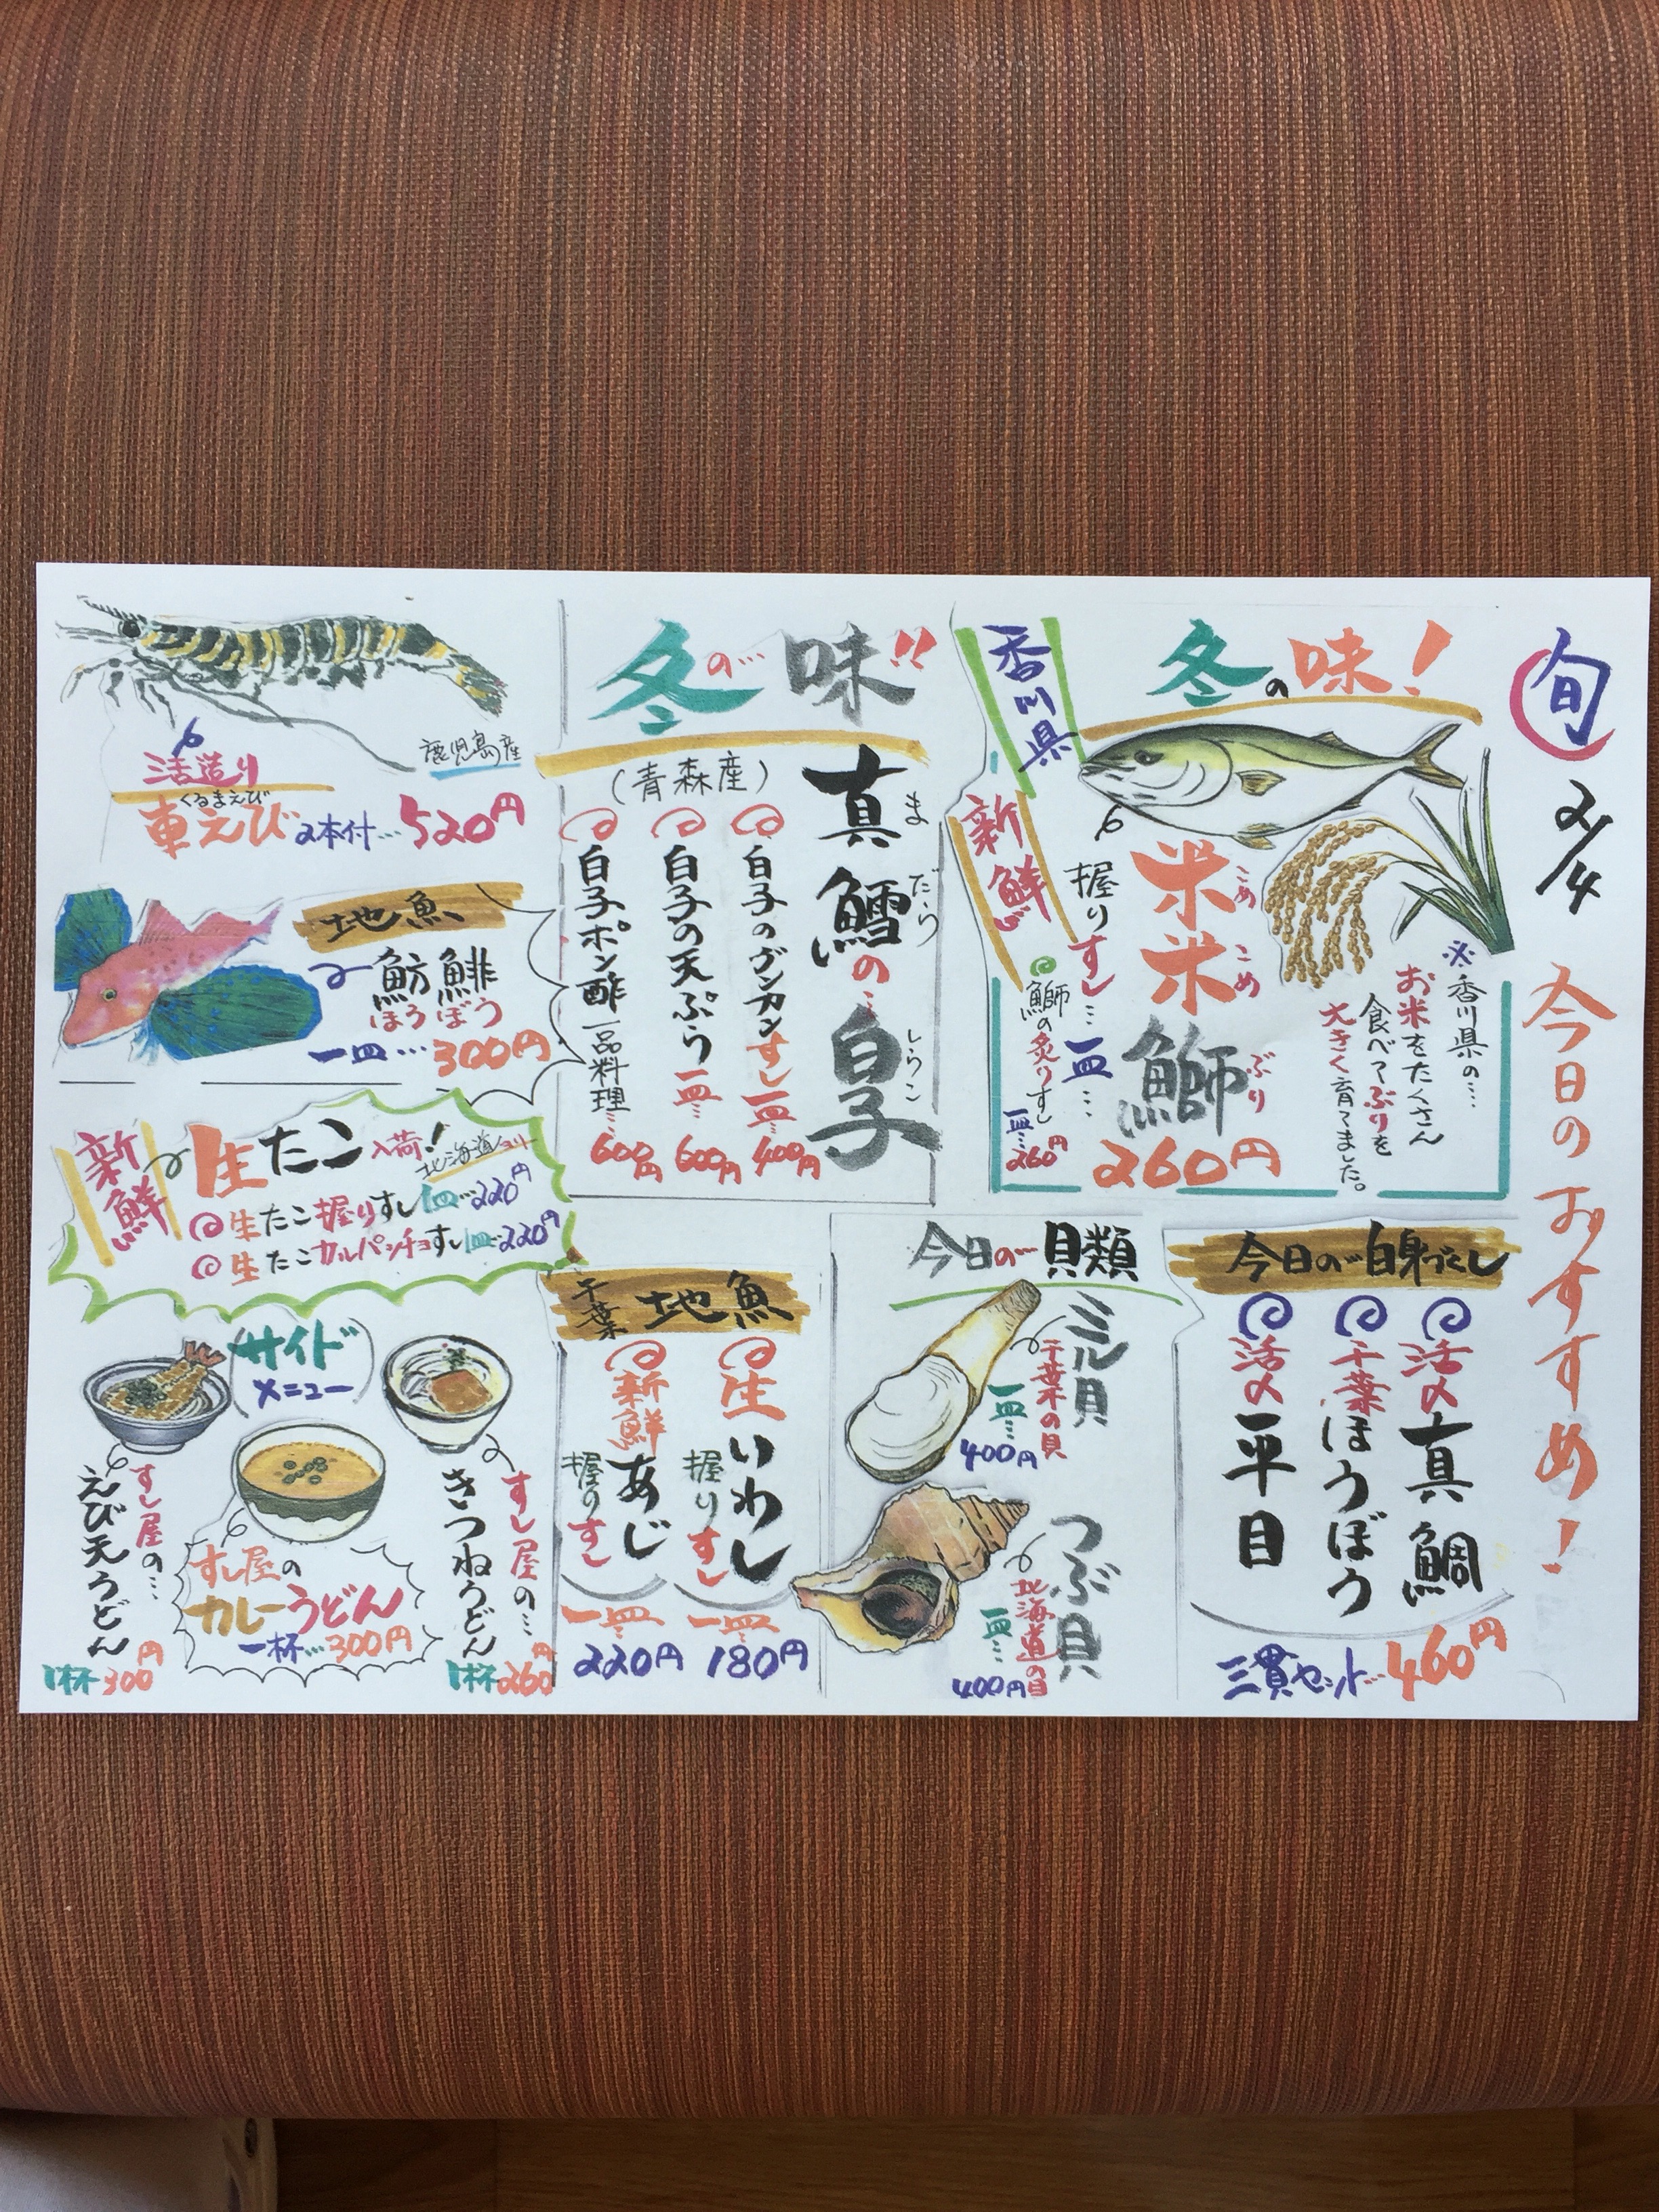 旬
2/4
今日のおすすめ!
冬の味!
香川県
新鮮
米米鰤
こめ
こめ
ぶり
握りすし…一皿…
260円
鰤の炙りすし
一皿…260円
※香川県の…
お米をたくさん
食べてぶりを
大きく育てました。
冬の…味!!
真鱈の…白子
ま
だら
しらこ
(青森産)
白子のグンカンすし一皿…400円
白子の天ぷら一皿…600円
白子ポン酢一品料理…600円
活造り
鹿児島産
くるまえび
車えび2本付…520円
地魚
魴鯡
ほうぼう
一皿…300円
新鮮
生たこ入荷!
北海道
生たこ握りすし一皿…220円
生たこカルパッチョすし一皿…220円
今日の…白身づくし
活〆真鯛
千葉ほうぼう
活〆平目
三貫セット…460円
今日の…貝類
ミル貝
千葉の貝
一皿…
400円
つぶ貝
北海道の貝
一皿…
400円
千葉
地魚
生いわし
握りすし
一皿…
180円
新鮮あじ
握りすし
一皿…
220円
サイド
メニュー
すし屋の…
きつねうどん
1杯260円
すし屋の
カレーうどん
一杯…300円
すし屋の…
えび天うどん
1杯300円